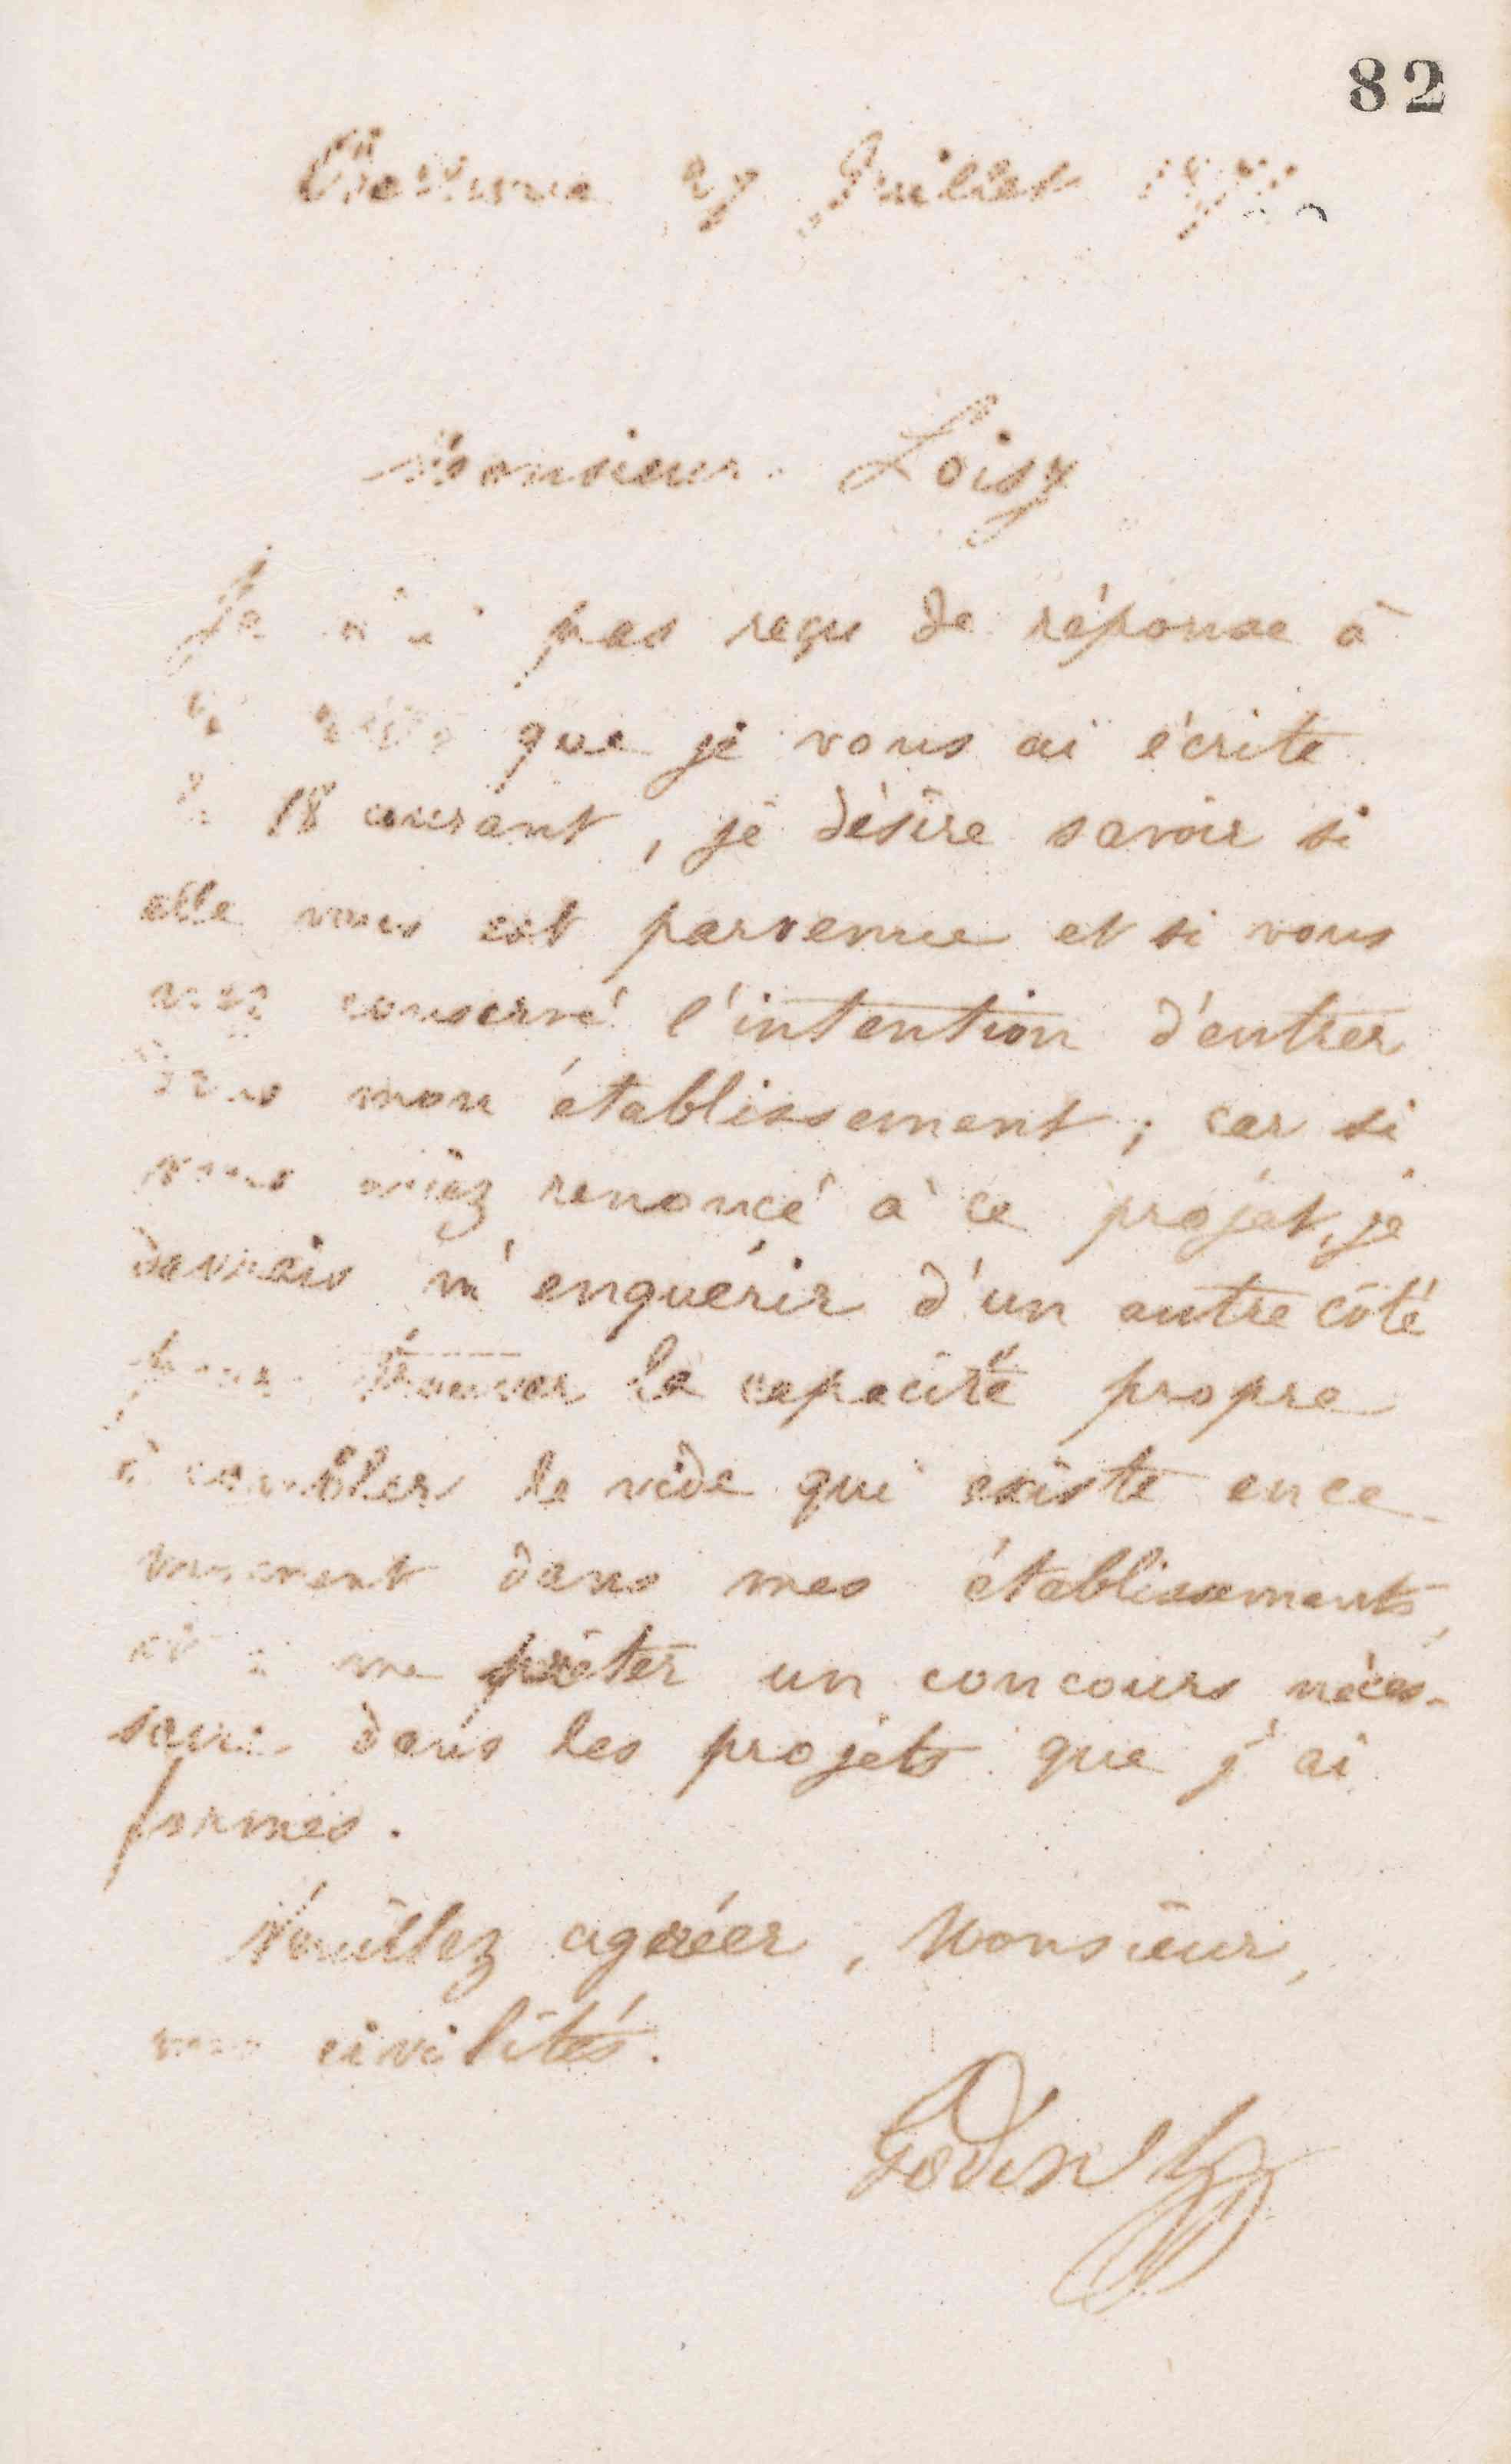 82
27 Juillet
Monsieur Loisy
Je n'ai pas reçu de réponse à
que je vous ai écrite
18 courant, je désire savoir si
elle vous est parvenue et si vous
avez conservé l'intention d'entrer
dans mon établissement ; car si
vous aviez renoncé à ce projet, je
devrais m'enquérir d'un autre côté
pour trouver la capacité propre
à combler le vide qui existe en ce
moment dans mes établissements,
et à me prêter un concours néces-
saire dans les projets que j'ai
formés.
Veuillez agréer, Monsieur,
mes civilités.
Godin